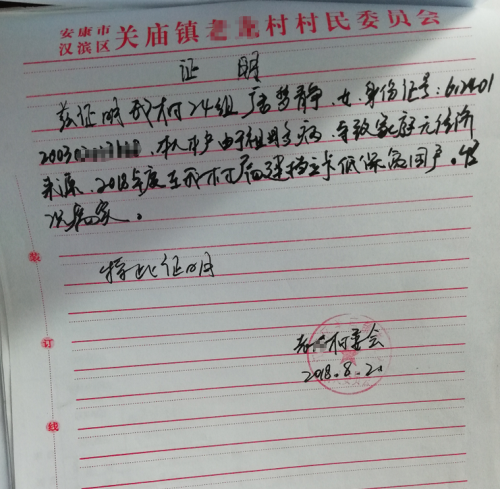 安康市
汉滨区 关庙镇老 村村民委员会
证 明
兹证明我村24组 梦静,女,身份证号:612401
20030 ,本人户由于祖母多病,导致家庭无经济
来源,2018年度在我村属建档立卡低保贫困户。情
况属实。
特此证明
村委会
2018.8.20
装
订
线